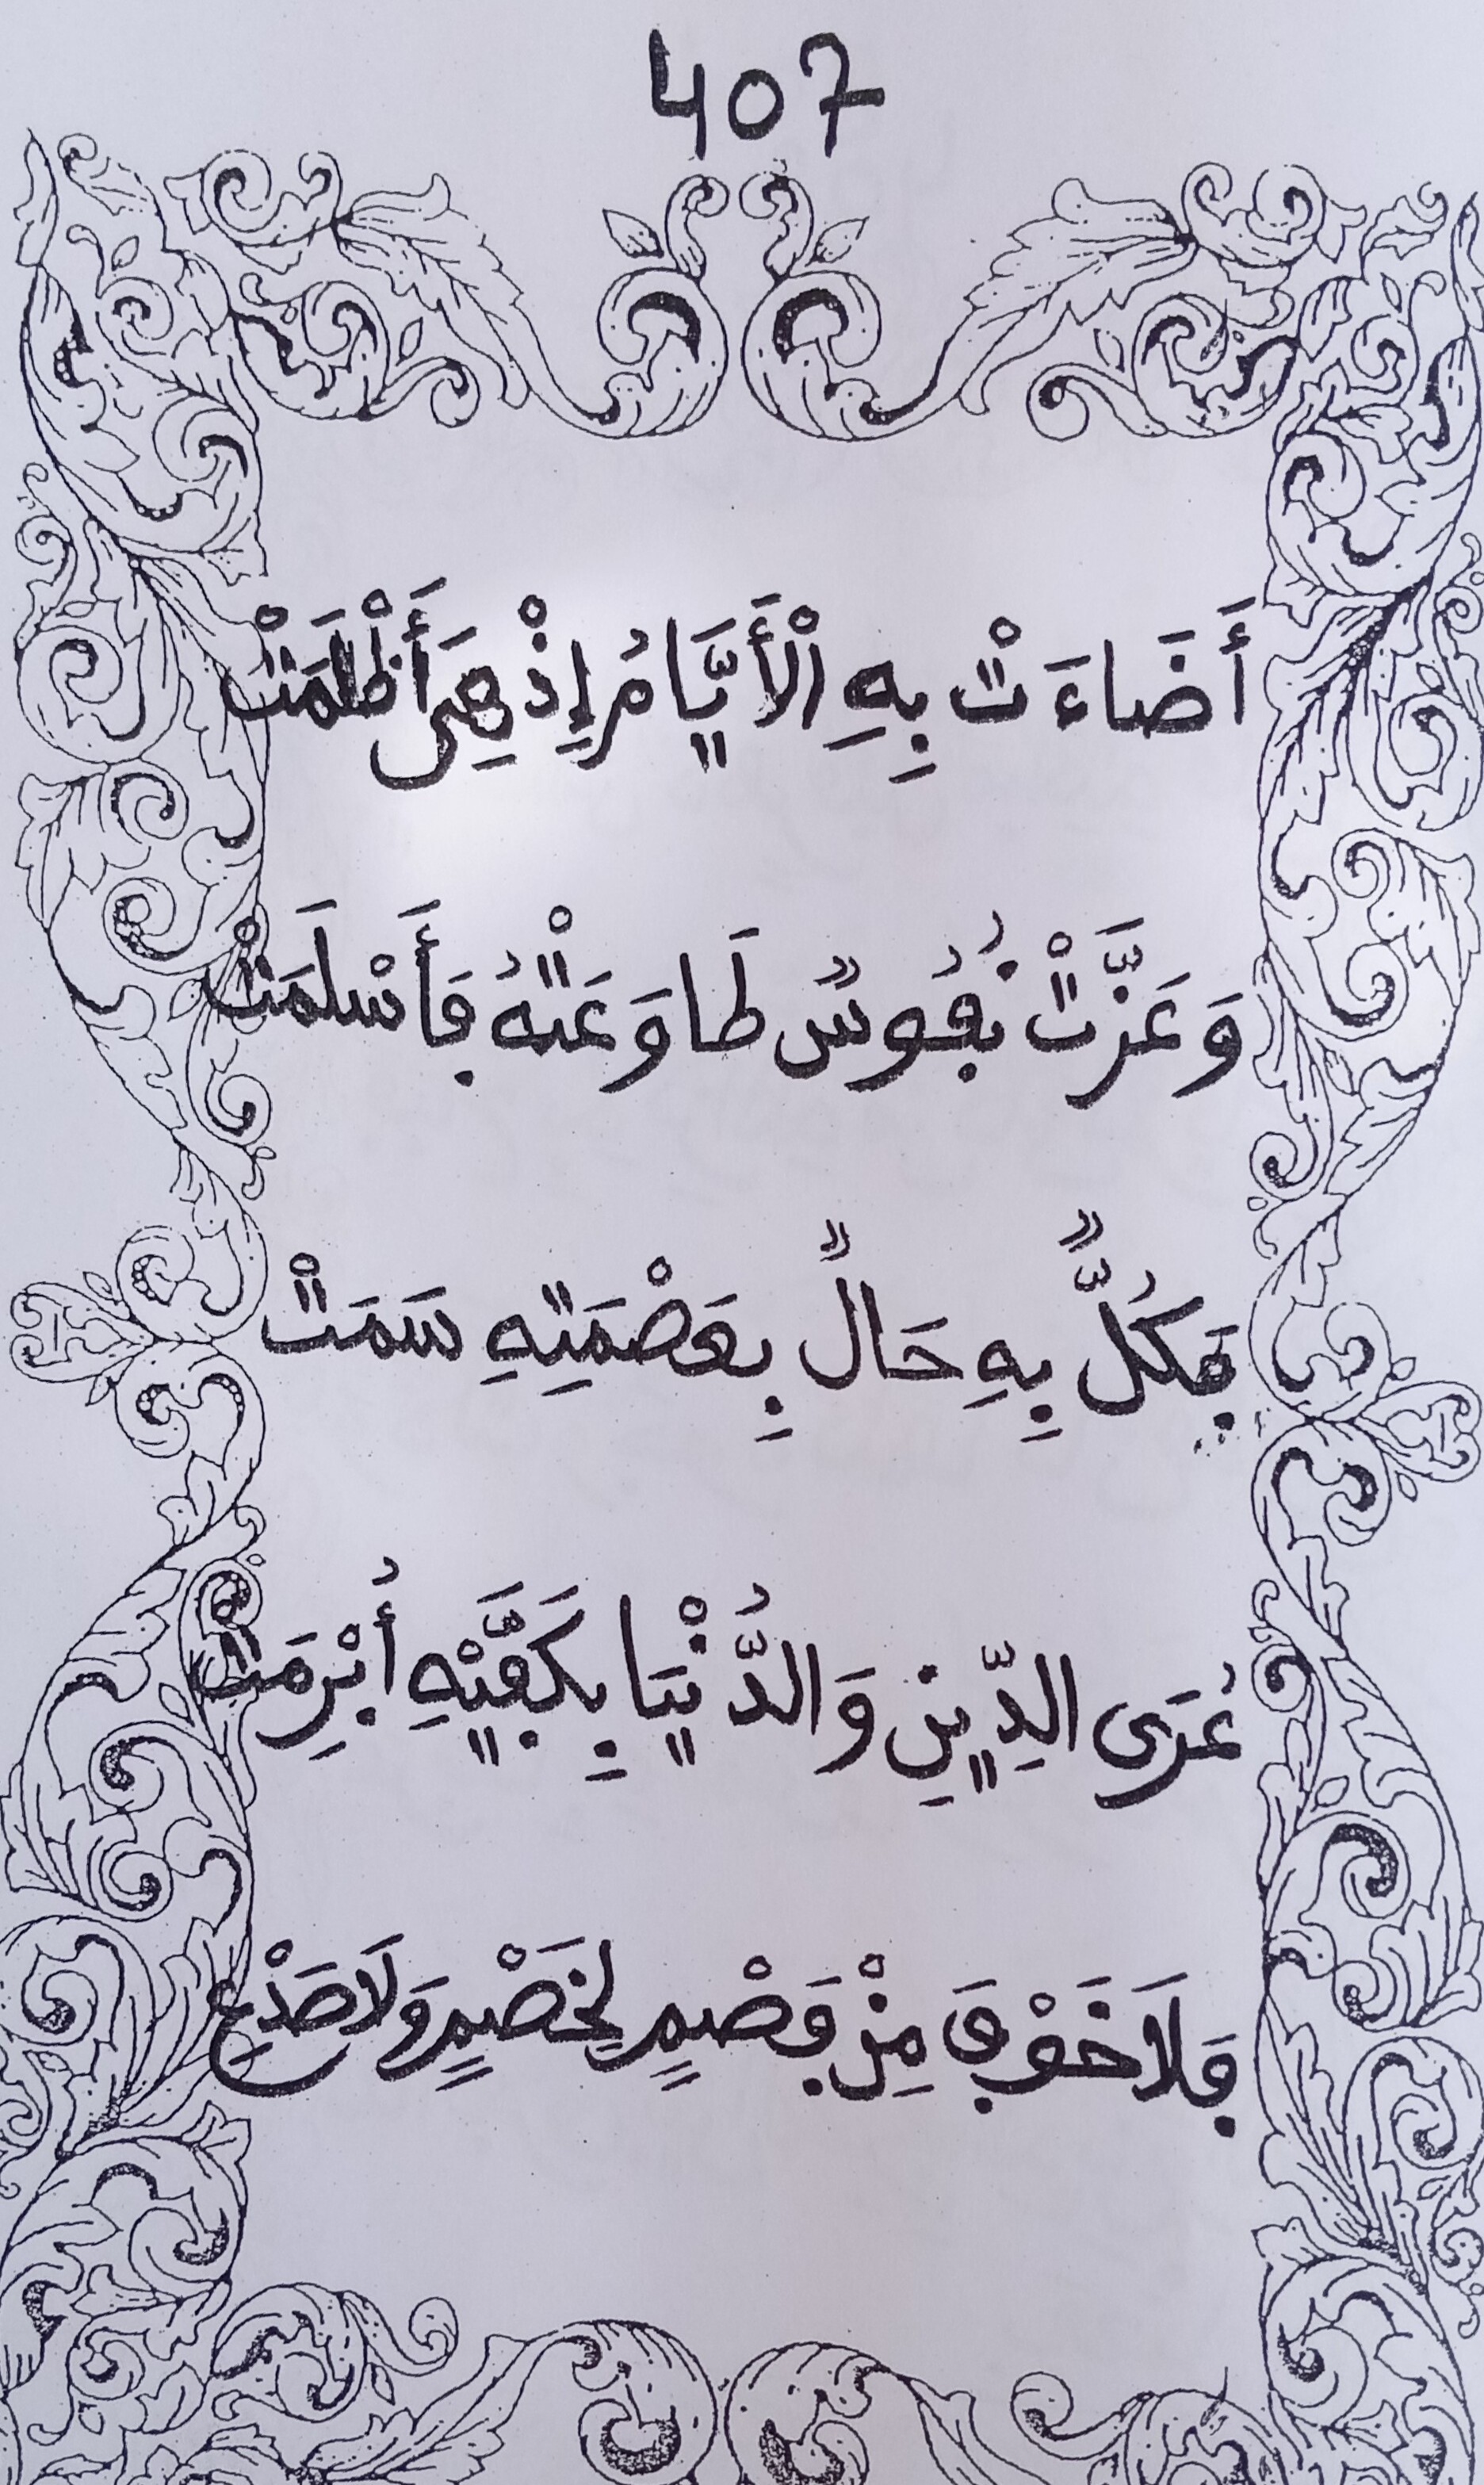 407
أَضَاءَتْ بِهِ الْأَيَّامُ إِذْ هِيَ أَظْلَمَتْ
وَعَزَّتْ نُفُوسٌ طَاوَعَتْهُ فَأَسْلَمَتْ
فَكُلٌّ بِهِ حَالٌ بِعَصْمَتِهِ سَمَتْ
عُرَى الدِّينِ وَالدُّنْيَا بِكَفَّيْهِ أُبْرِمَتْ
فَلَا خَوْفَ مِنْ فَصْمٍ لِخَصْمٍ وَلَا صَدْعِ